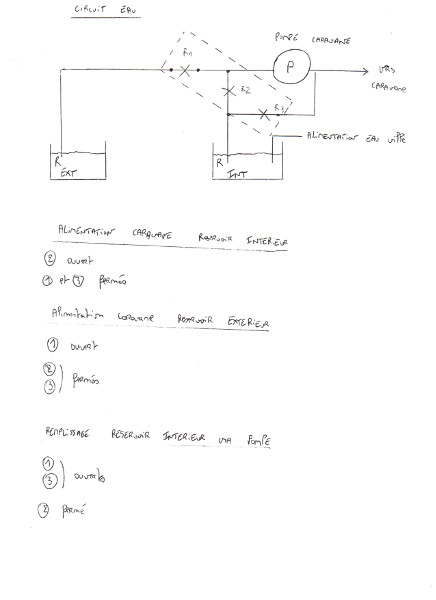 CIRCUIT EAU
POMPE CARAVANE
R1
P
VERS
CARAVANE
R2
R3
ALIMENTATION EAU VILLE
R EXT
R INT
ALIMENTATION CARAVANE RESERVOIR INTERIEUR
② ouvert
① et ③ fermés
Alimentation caravane RESERVOIR EXTERIEUR
① ouvert
②
③ fermés
REMPLISSAGE RESERVOIR INTERIEUR VIA POMPE
①
③ ouvertes
② fermé